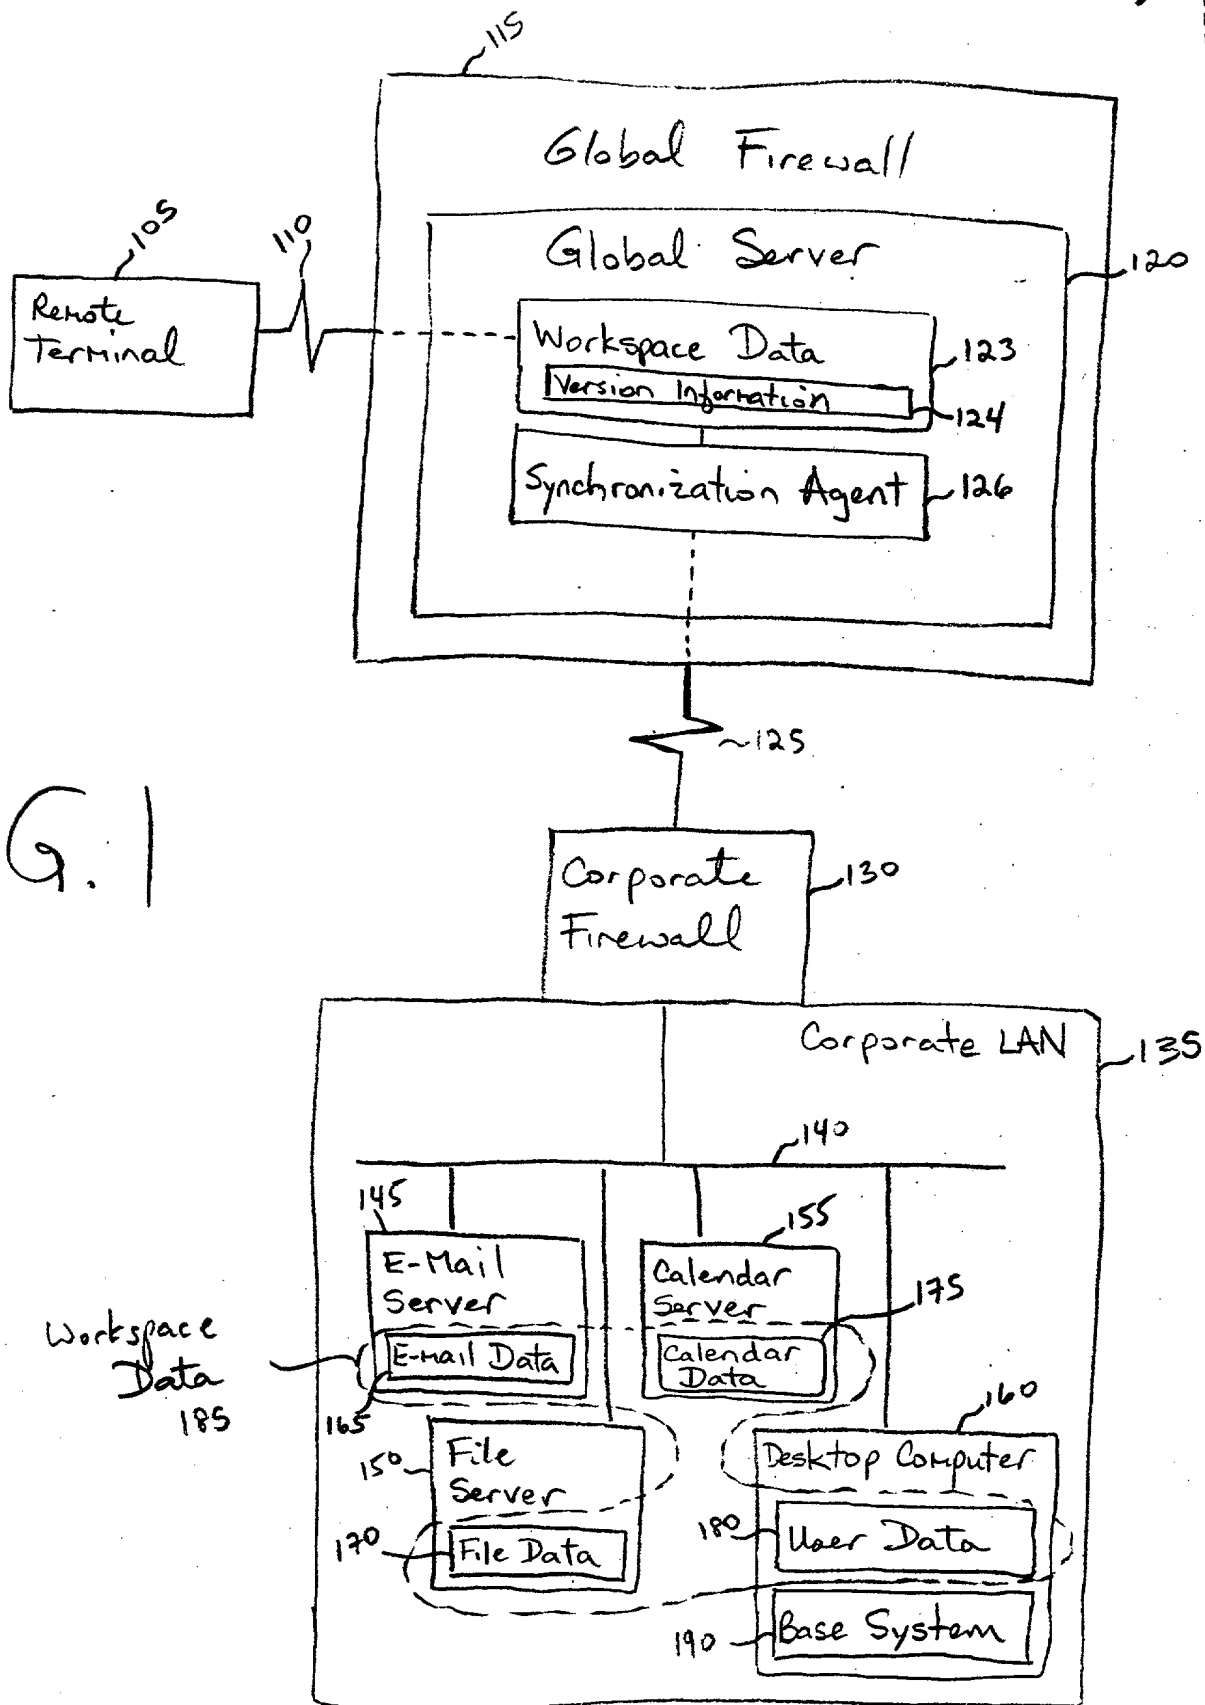 115
Global Firewall
105
110
Global Server
120
Remote
Terminal
Workspace Data
123
Version Information
124
Synchronization Agent
126
~125
G. 1
Corporate
Firewall
130
Corporate LAN
135
140
145
155
E-Mail
Server
Calendar
Server
175
Workspace
Data
185
E-Mail Data
Calendar
Data
165
160
150
File
Server
Desktop Computer
170
File Data
180
User Data
190
Base System